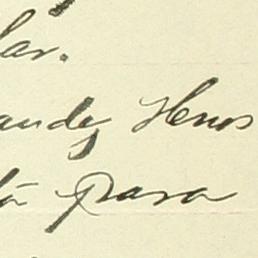 lar.
andez Hnos
tá para